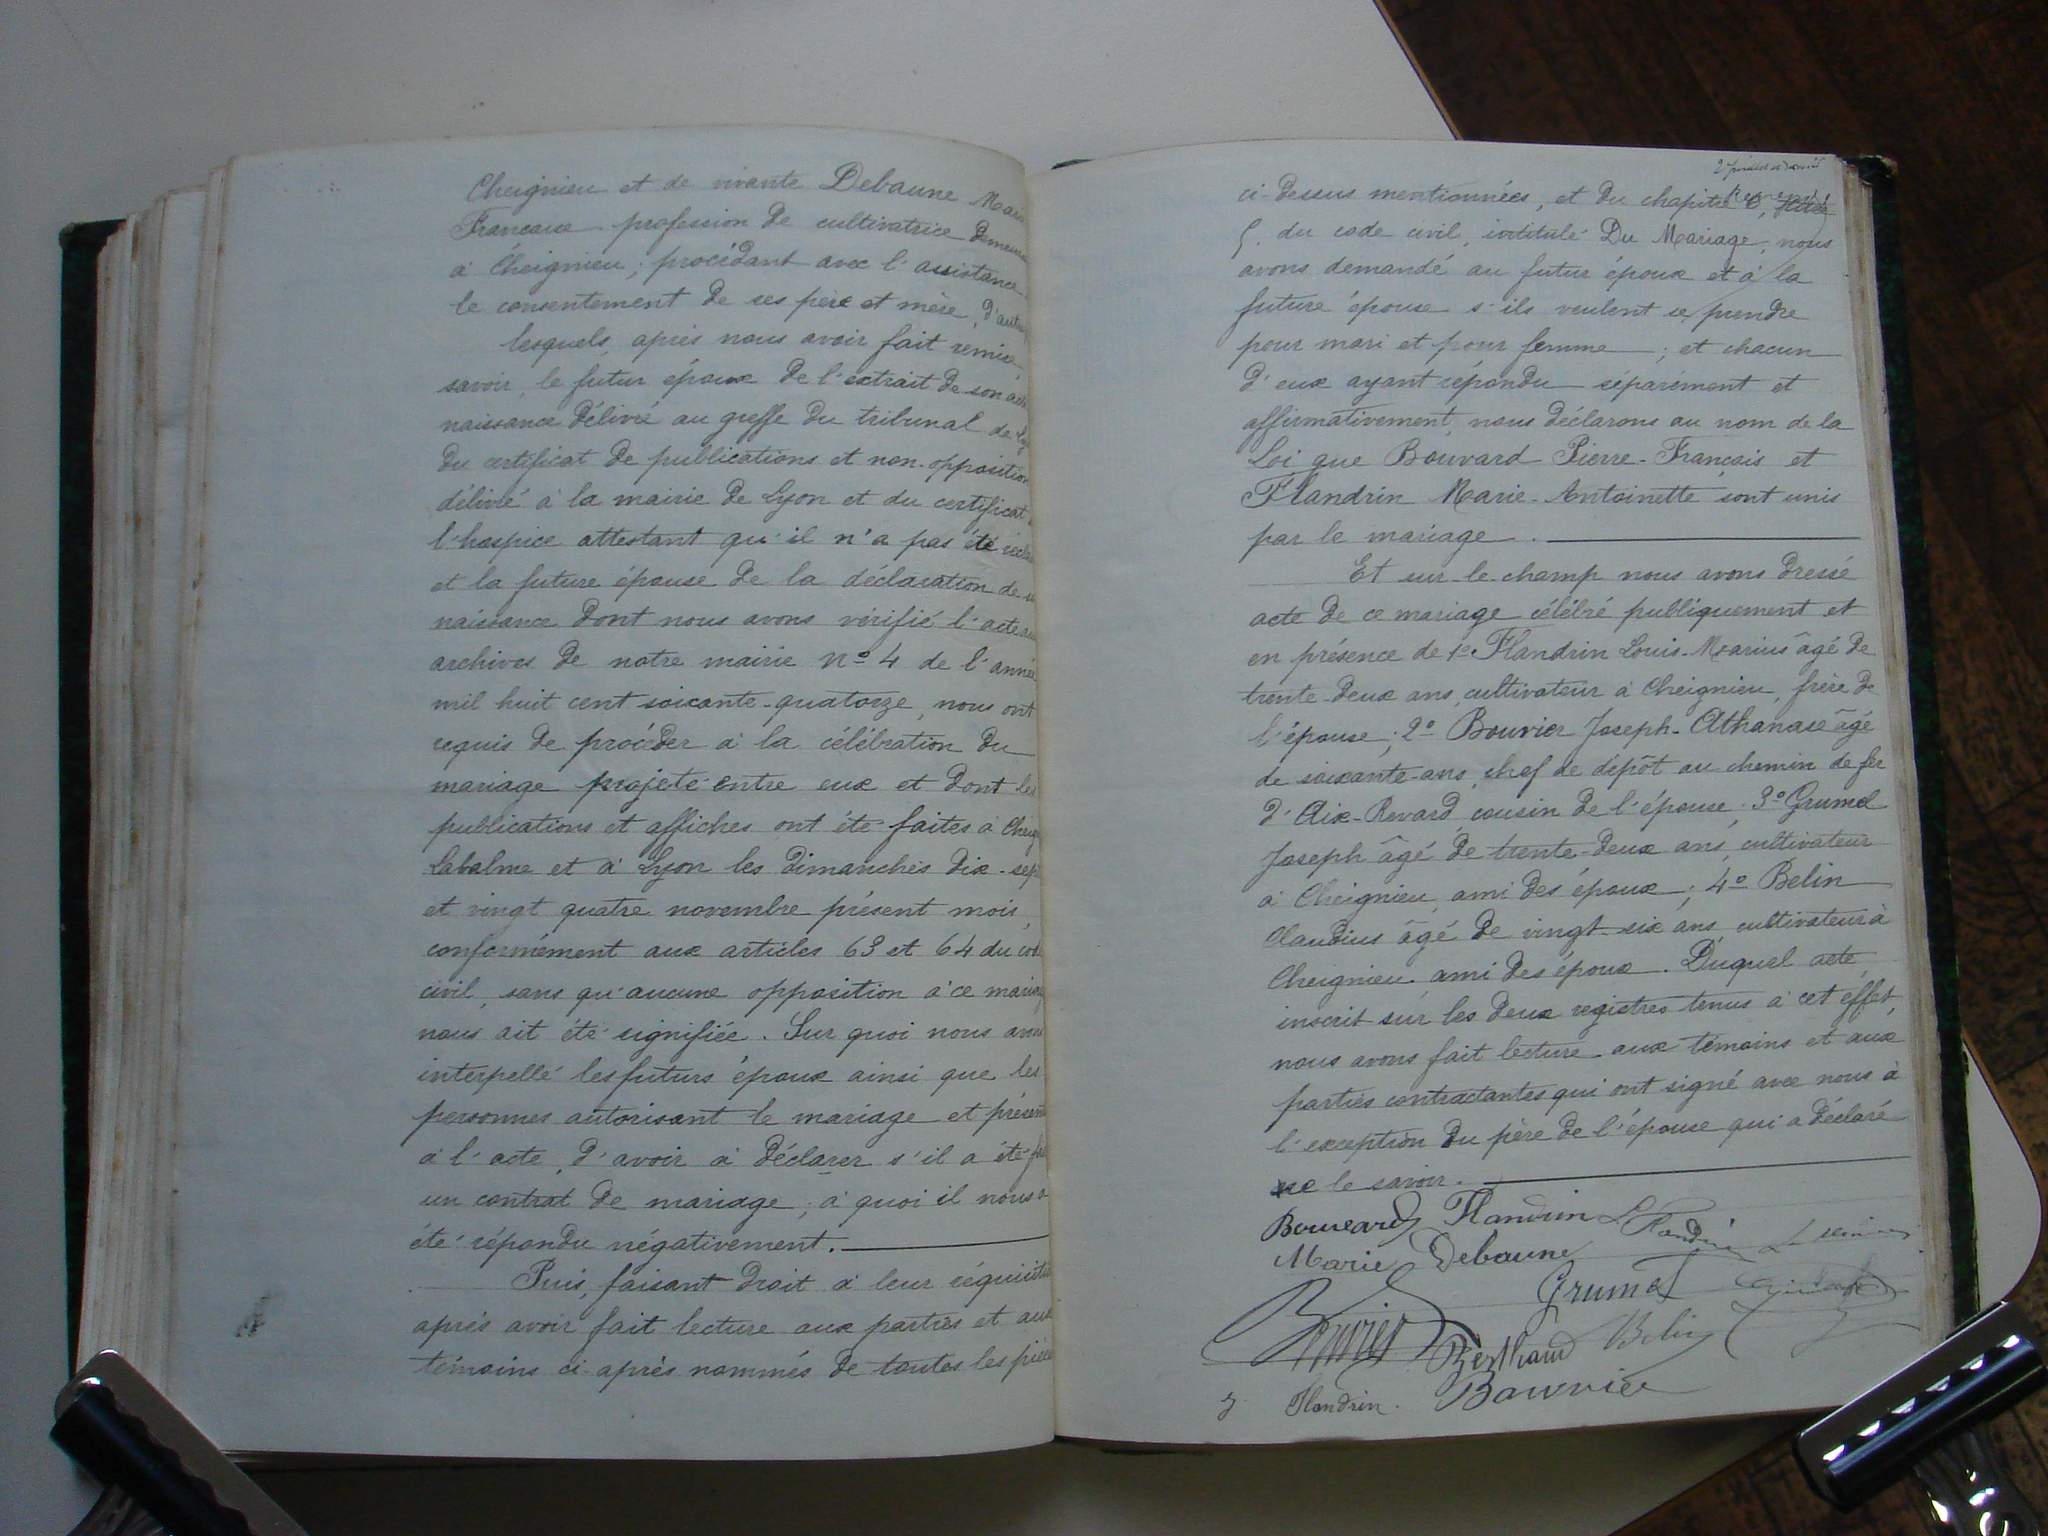 Cheignieu et de vivante Debaune Marie
Francoise profession de cultivatrice demeurant
à Cheignieu; procédant avec l'assistance
le consentement de ses père et mère, d'autre
lesquels, après nous avoir fait remise
savoir, le futur époux de l'extrait de son acte
naissance délivré au greffe du tribunal de Lyon
du certificat de publications et non-opposition
délivré à la mairie de Lyon et du certificat
l'hospice attestant qu'il n'a pas été
et la future épouse de la déclaration de
naissance dont nous avons vérifié l'acte aux
archives de notre mairie No 4 de l'année
mil huit cent soixante-quatorze, nous ont
requis de procéder à la célébration du
mariage projeté entre eux et dont les
publications et affiches ont été faites à Cheig
Labalme et à Lyon les dimanches dix-sept
et vingt quatre novembre présent mois,
conformément aux articles 63 et 64 du code
civil, sans qu'aucune opposition à ce mariage
nous ait été signifiée. Sur quoi nous avons
interpellé les futurs époux ainsi que les
personnes autorisant le mariage et présentes
à l'acte, d'avoir à déclarer s'il a été fait
un contrat de mariage; à quoi il nous a
été répondu négativement.
Puis, faisant droit à leur réquisition
après avoir fait lecture aux parties et aux
témoins ci-après nommés de toutes les pièces
ci-dessus mentionnées, et du chapitre 6,
5. du code civil, intitulé Du Mariage, nous
avons demandé au futur époux et à la
future épouse s'ils veulent se prendre
pour mari et pour femme; et chacun
d'eux ayant répondu séparément et
affirmativement, nous déclarons au nom de la
Loi que Bouvard Pierre-François et
Flandrin Marie-Antoinette sont unis
par le mariage.
Et sur-le-champ nous avons dressé
acte de ce mariage célébré publiquement et
en présence de 1e Flandrin Louis-Marius âgé de
trente-deux ans, cultivateur à Cheignieu, frère de
l'épouse; 2o Bouvier Joseph-Athanase âgé
de soixante ans, chef de dépôt au chemin de fer
d'Aix-Revard cousin de l'épouse; 3o Grumel
Joseph âgé de trente-deux ans, cultivateur
à Cheignieu, ami des époux; 4o Belin
Claudius âgé de vingt-six ans, cultivateur à
Cheignieu, ami des époux. Duquel acte,
inscrit sur les deux registres tenus à cet effet,
nous avons fait lecture aux témoins et aux
parties contractantes qui ont signé avec nous à
l'exception du père de l'épouse qui a déclaré
ne le savoir.
Bouvard Flandrin L. Flandrin
Marie Debaune
Grumel
Bouvier Berthaud Belin
Flandrin. Bouvier